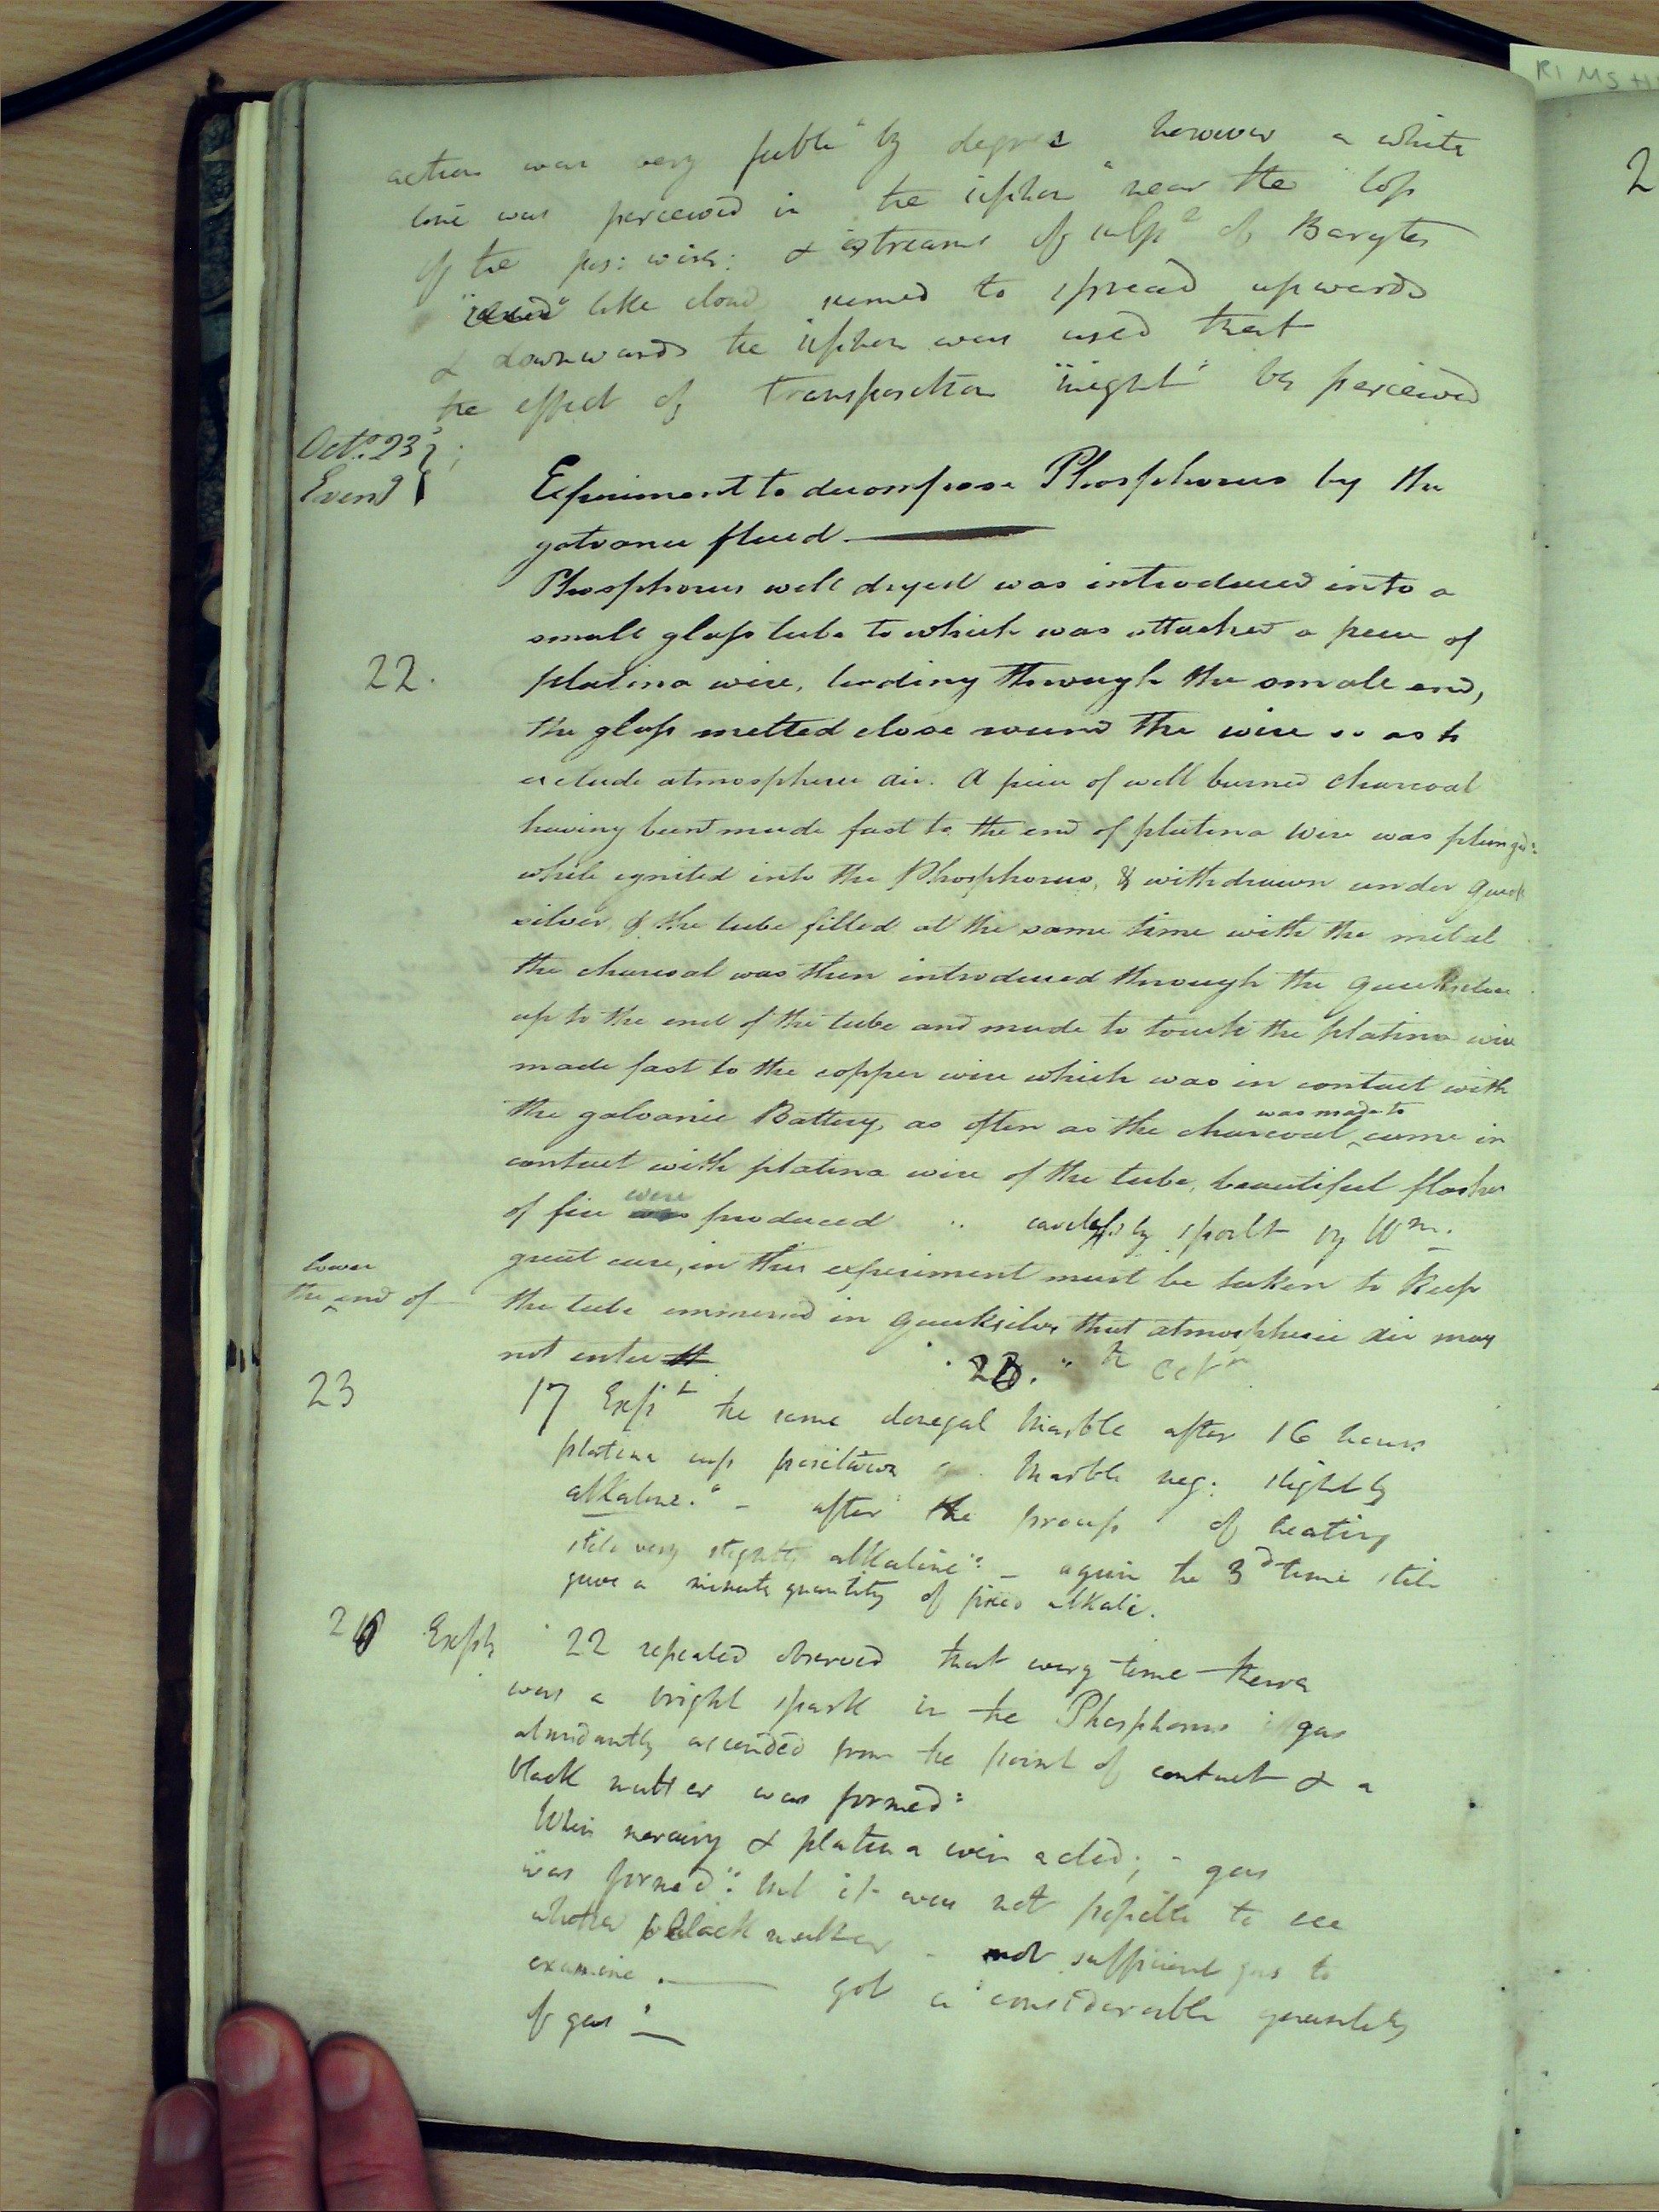 action was very feeble by degrees however a white
line was perceived in the siphon near the top
of the pos: wire: & streams of sulp^e of Barytes
like cloud seemed to spread upwards
& downwards the siphon was used that
the effect of transposition might be perceived
Oct^r. 23
Even^g
Experiment to decompose Phosphorus by the
galvanic fluid.
Phosphorus well dryed was introduced into a
small glass tube to which was attached a piece of
22.
platina wire, leading through the small end,
the glass melted close round the wire so as to
exclude atmospheric air. A piece of well burned charcoal
having been made fast to the end of platina wire was plunged
while ignited into the Phosphorus, & withdrawn under quick
silver, & the tube filled at the same time with the metal
the charcoal was then introduced through the quicksilver
up to the end of the tube and made to touch the platina wire
made fast to the copper wire which was in contact with
the galvanic Battery, as often as the charcoal was made to come in
contact with platina wire of the tube, beautiful flashes
of fire were produced carelessly spoilt by Wm.
great care, in this experiment must be taken to keep
the lower end of
the tube immersed in quicksilver that atmospheric air may
not enter
th Oct^r
23
17 Exp^t the same donegal Marble after 16 hours
platina cup positive Marble neg: slightly
alkaline." - after the process of heating
still very slightly alkaline": - again the 3^d time still
gave a minute quantity of fixed alkali.
Expt 22 repeated observed that every time there
was a bright spark in the Phosphorus gas
abundantly ascended from the point of contact & a
black matter was formed:
When mercury & platina wire acted; - gas
was formed": but it was not possible to see
whether black matter - not sufficient gas to
examine. — got a considerable quantity
of gas: —
2
RI MS H